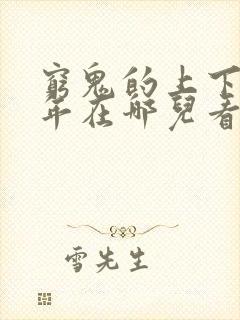 窮鬼的上下
年在哪兒看
雪先生